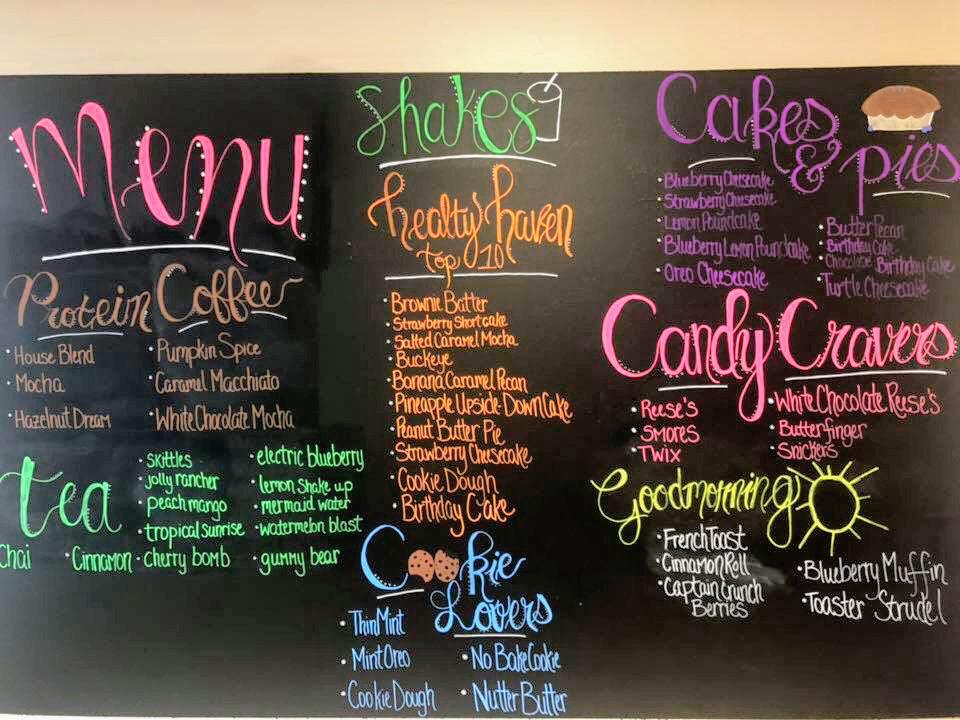 Menu
Protein Coffee
• House Blend
• Mocha
• Hazelnut Dream
• Pumpkin Spice
• Caramel Macchiato
• White Chocolate Mocha
tea
Chai
• Cinnamon
• Skittles
• jolly rancher
• peach mango
• tropical sunrise
• cherry bomb
• electric blueberry
• lemon shake up
• mermaid water
• watermelon blast
• gummy bear
Shakes
healty haven
top 10
• Brownie Batter
• Strawberry Shortcake
• Salted Caramel Mocha
• Buckeye
• Banana Caramel Pecan
• Pineapple Upside-Down Cake
• Peanut Butter Pie
• Strawberry Cheesecake
• Cookie Dough
• Birthday Cake
Cookie
Lovers
• Thin Mint
• Mint Oreo
• Cookie Dough
• No Bake Cookie
• Nutter Butter
Cakes
& pies
• Blueberry Cheesecake
• Strawberry Cheesecake
• Lemon Poundcake
• Blueberry Lemon Poundcake
• Oreo Cheesecake
• Butter Pecan
• Birthday Cake
• Chocolate Birthday Cake
• Turtle Cheesecake
Candy Cravers
• Reese's
• Smores
• TWIX
• White Chocolate Reese's
• Butterfinger
• Snickers
Goodmorning
• French Toast
• Cinnamon Roll
• Captain Crunch
Berries
• Blueberry Muffin
• Toaster Strudel